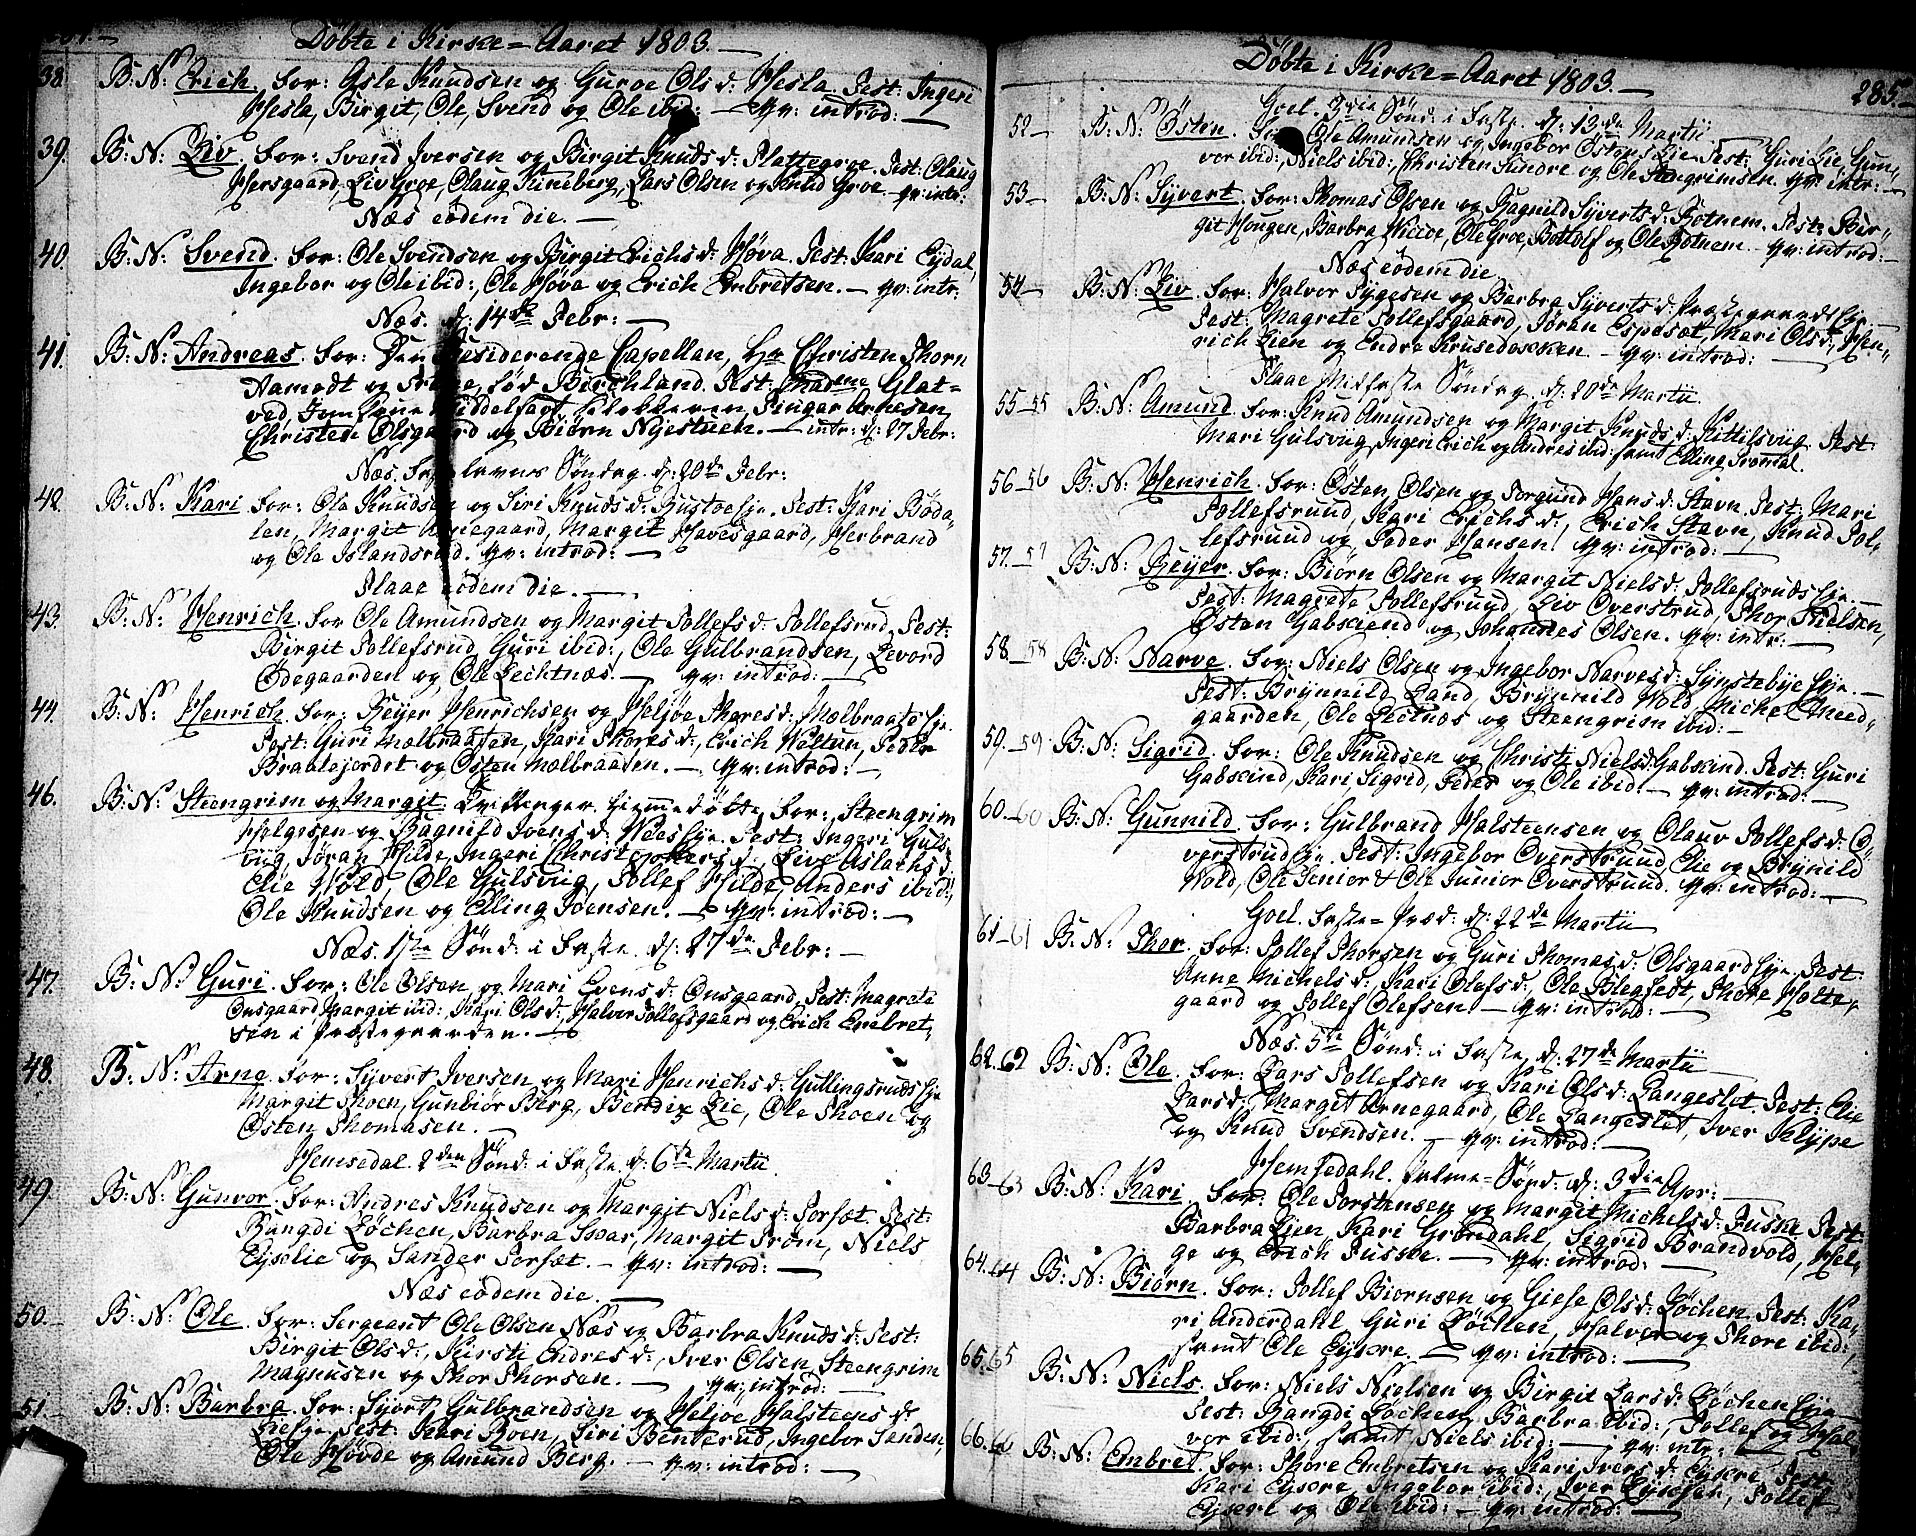 Döbte i Kirke=Aaret 1803.
38. B: N: Erich. For: Asle Knudsen og Guroe Ols d: Hesla. Test: Ingeri
Hesla, Birgit, Ole, Svend og Ole ibid: — qv: introd:
39. B: N: Liv. For: Svend Iversen og Birgit Knuds d: Plattegroe. Test: Olaug
Hersgaard, Liv Groe, Olaug Trineberg, Lars Olsen og Knud Groe — qv: intr:
Næs eodem die. —
40. B: N: Svend. For: Ole Svendsen og Birgit Erichs d: Höva. Test: Kari Eydal,
Ingebor og Ole ibid:, Ole Höva og Erich Embretsen. — qv: intr:
Næs. d: 14de Febr: —
41. B: N: Andreas. For: Den Residerende Capellan, Hr Christen Thorn
Aamodt og Frue, föd Birchland. Test: Madme Glat=
ved, Klokkeren, Ringer Arnesen,
Christen Olsgaard og Biörn Nyestuen. — intr: d: 27 Febr:
Næs. Fastelavns Söndag. d: 20de Febr:
42. B: N: Kari. For: Ole Knudsen og Siri Knuds d: Rustoe eje. Test: Kari Böda-
len, Margit Arnegaard, Margit Havesgaard, Herbrand
og Ole Islandsrud. qv: introd: —
Flaae eodem die. —
43. B: N: Henrich. For Ole Amundsen og Margit Tollefs d: Tollefsrud. Test:
Birgit Tollefsrud, Guri ibid:, Ole Gulbrandsen, Levord
Ödegaarden og Ole Lechtnæs. — qv: introd: —
44. B: N: Henrich. For: Reyer Henrichsen og Heljöe Thores d: Mælbraate eje.
Test: Guri Mælbraaten, Kari Thores d:, Erich Weltun, Peder
Braatejordet og Östen Mælbraaten. — qv: introd: —
46. B: N: Steengrim og Margit. Tvillinger. hiemmedöbte. For: Steengrim
Helgesen og Ragnild Ivers d: Wees eje. Test: Ingeri Guls-
viig, Jöran Hilde, Ingeri Christophers d:, Live Aslachs d:
Elie Wold, Ole Gulsviig, Tollef Hilde, Anders ibid:,
Ole Knudsen og Elling Joensen. — qv: introd: —
Næs. 1ste Sönd: i Faste. d: 27de Febr: —
47. B: N: Guri. For: Ole Olsen og Mari Evens d: Onsgaard. Test: Magrete
Onsgaard, Margit ibid:, Kari Ols d:, Halvor Tollefsgaard og Erich Enebret-
sen i Præstegaarden. —
48. B: N: Arne. For: Syvert Iversen og Mari Henrichs d: Gullingsruds eje
Margit Thoen, Gunbiör Berg, Bendix Lie, Ole Thoen og
Östen Thomasen. —
Hemsedal. 2den Sönd: i Faste, d: 6te Martii
49. B: N: Gunvor. For: Andres Knudsen og Margit Niels d: Torset. Test:
Rangdi Löchen, Barbra Svar, Margit Trom, Niels
Eyselie og Sander Torset. — qv: introd: —
Næs eodem die. —
50. B: N: Ole. For: Sergeant Ole Olsen Næs og Barbra Knuds d: Test:
Birgit Ols d:, Kirsti Endres d:, Iver Olsen, Steengrim
Magnusen og Thor Thorsen. — qv: introd: —
51. B: N: Barbra. For: Syvert Gulbrandsen og Heljöe Halsteens d:
Lie eje. Test: Kari Roen, Siri Benterud, Ingebor Sanden
Ole Hovde og Amund Berg. — qv: introd: —
Döbte i Kirke=Aaret 1803. — 285. —
Goel. 3die Sönd: i Faste. d: 13de Martii
52 — B: N: Östen. For: Ole Amundsen og Ingebor Östens Lie. Test: Guri Lie, Gun-
vor ibid:, Niels ibid:, Christen Sundre og Ole Steengrimsen. qv: intr: —
53 — B: N: Syvert. For: Thomas Olsen og Ragnild Syverts d: Rotnem. Test: Bir-
git Hougen, Barbra Wiche, Ole Groe, Bottolf og Ole Rotnem. qv: introd: —
Næs eodem die
54 — B: N: Liv. For: Halvor Tygesen og Barbra Syverts d: Præstegaards eje.
Test: Magrete Tollefsgaard, Jöran Espeset, Mari Ols d:, Hen-
rich Lien og Endre Krusedokken. — qv: introd: —
Flaae Midfaste Söndag. d: 20de Martii
55 — 55 B: N: Amund. For: Knud Amundsen og Margit Knuds d: Kittilsviig. Test:
Mari Gulsviig, Ingeri, Erich og Andres ibid: samt Elling Tromtal.
56 — 56 B: N: Henrich. For: Östen Olsen og Torgund Hans d: Stavn. Test: Mari
Tollefsruud, Kari Erichs d:, Erich Stavn, Knud Tol-
lefsruud og Peder Hansen. qv: introd: —
57. — 57 B: N: Reyer. For: Biörn Olsen og Margit Niels d: Tollefsruds eje. —
Test: Magrete Tollefsruud, Liv Overstrud, Thor Nielsen,
Östen Gabskiend og Johannes Olsen. qv: intr: —
58. — 58 B: N: Narve. For: Niels Olsen og Ingebor Narves d: Synstebye eje. —
Test: Brynnild Sand, Brynnild Wold, Michel Need-
gaarden, Ole Lectnæs og Steengrim ibid: —
59. — 59 B: N: Sigrid. For: Ole Knudsen og Christi Niels d: Gabskind. Test: Guri
Gabskind, Kari, Sigrid, Peder og Ole ibid: — qv: introd: —
60. — 60 B: N: Gunnild. For: Gulbrand Halsteensen og Olaur Tollefs d: O-
verstrud eje. Test: Ingebor Overstruud, Elie og Brynild
Wold, Ole Senior & Ole Junior Overstruud. qv: introd: —
Goel. Faste= Præd: d: 22de Martii —
61 — 61 B: N: Thor. For: Tollef Thorsen og Guri Thomas d: Olsgaard eje. Test:
Anne Michels d:, Kari Olefs d:, Ole Blegfedt, Thore Holte-
gaard og Tollef Olefsen. — qv: introd: —
Næs. 5te Sönd: i Faste, d: 27de Martii —
62. 62 B: N: Ole. For: Lars Tollefsen og Kari Ols d: Langeslet. Test: Elie
Lars d:, Margit Arnegaard, Ole Langeslet, Iver Klype
og Knud Svendsen. — qv: introd: —
Hemsedahl. Palme= Sönd: d: 3die Apr: —
63 — 63 B: N: Kari. For: Ole Torstensen og Margit Michels d: Fuske. Test:
Barbra Lien, Kari Gröndahl, Sigrid Brandvold, Hel-
ge og Erich Fuske. — qv: introd: —
64. — 64 B: N: Biörn. For: Tollef Biornsen og Giese Ols d: Löchen. Test: Ka-
ri Anderdahl, Guri Löchen, Halvor og Thore ibid:,
samt Ole Eysere. — qv: introd: —
65. 65 B: N: Niels. For: Niels Nielsen og Birgit Lars d: Löchen eje —
Test: Rangdi Löchen, Barbra ibid:, Tollef og Hal-
vor ibid:, samt Niels ibid: — qv: intr: —
66. 66 B: N: Embret. For: Thore Embretsen og Kari Ivers d: Eysere. Test:
Kari Eysere, Ingebor ibid:, Iver Eysere, Tollef
Eysere og Ole ibid: — qv: introd: —